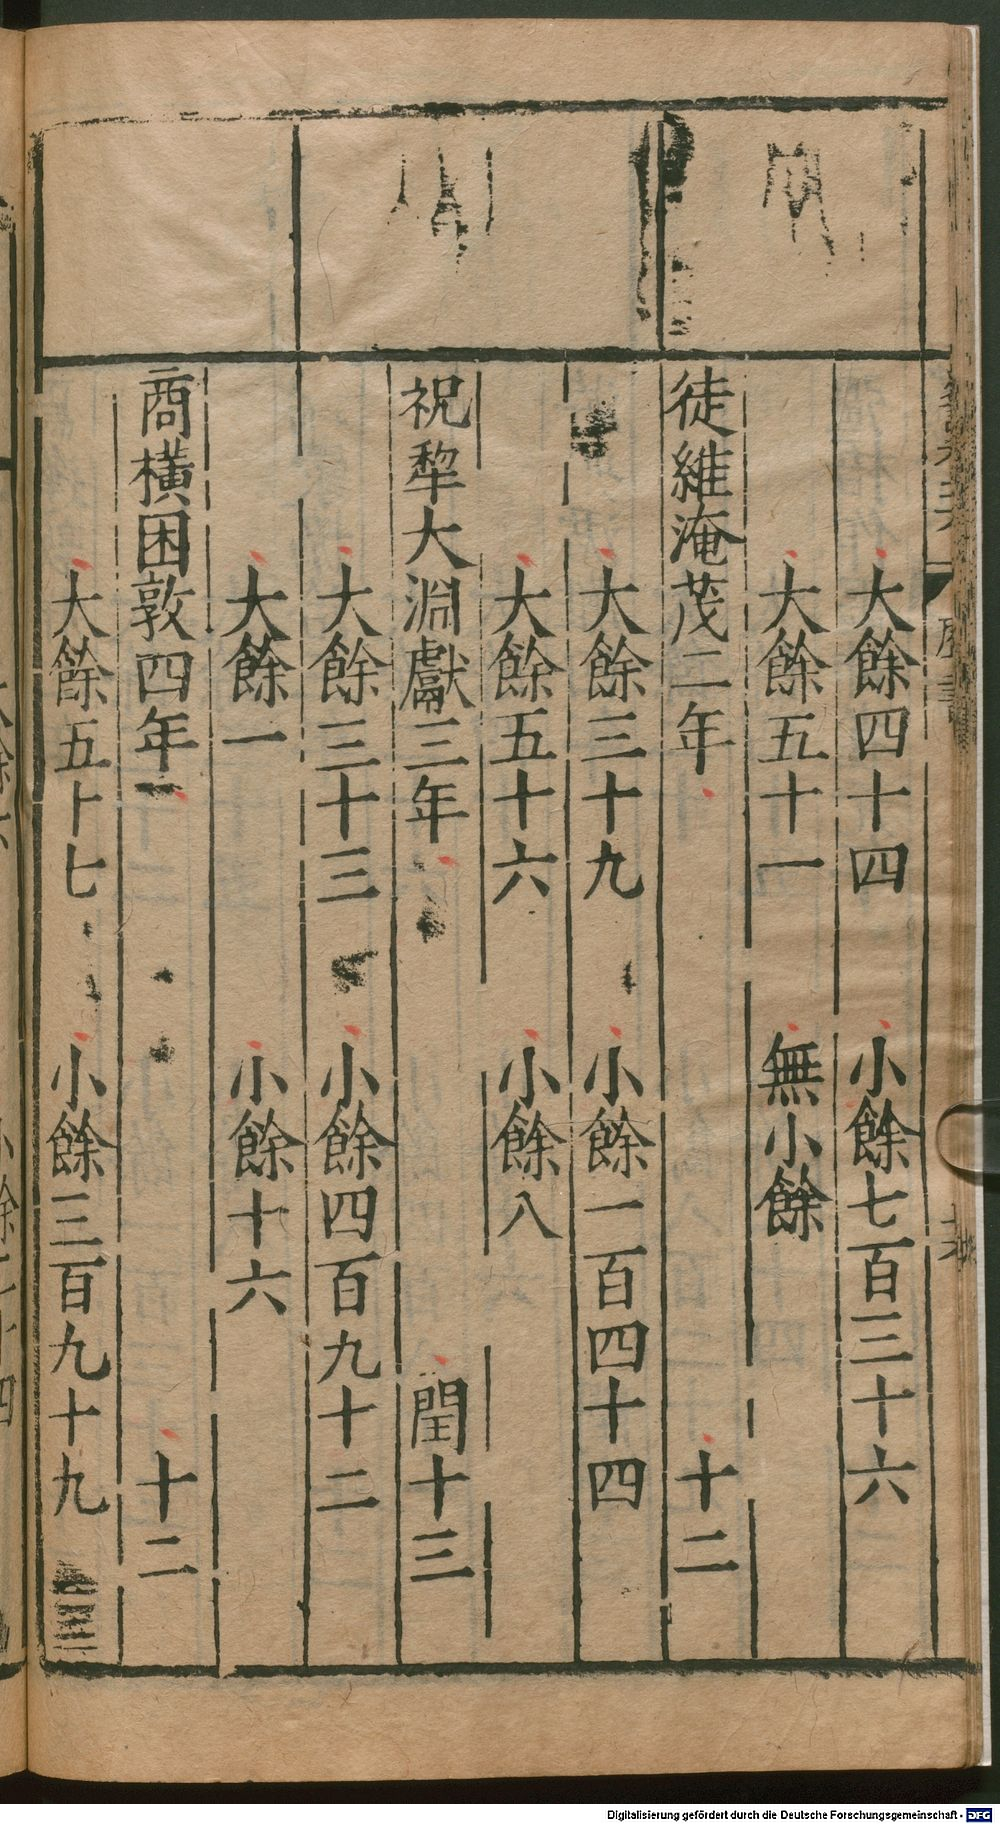 大餘四十四 小餘七百三十六
大餘五十一 無小餘
徒維淹茂二年 十二
大餘三十九 小餘一百四十四
大餘五十六 小餘八
祝犂大淵獻三年 閏十三
大餘三十三 小餘四百九十二
大餘一 小餘十六
商橫困敦四年 十二
大餘五十七 小餘三百九十九
Digitalisierung gefördert durch die Deutsche Forschungsgemeinschaft - DFG